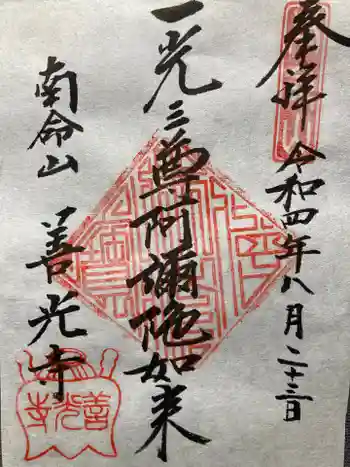 奉拝
令和四年八月二十三日
一光三尊阿彌陀如来
南命山
善光寺
善光寺